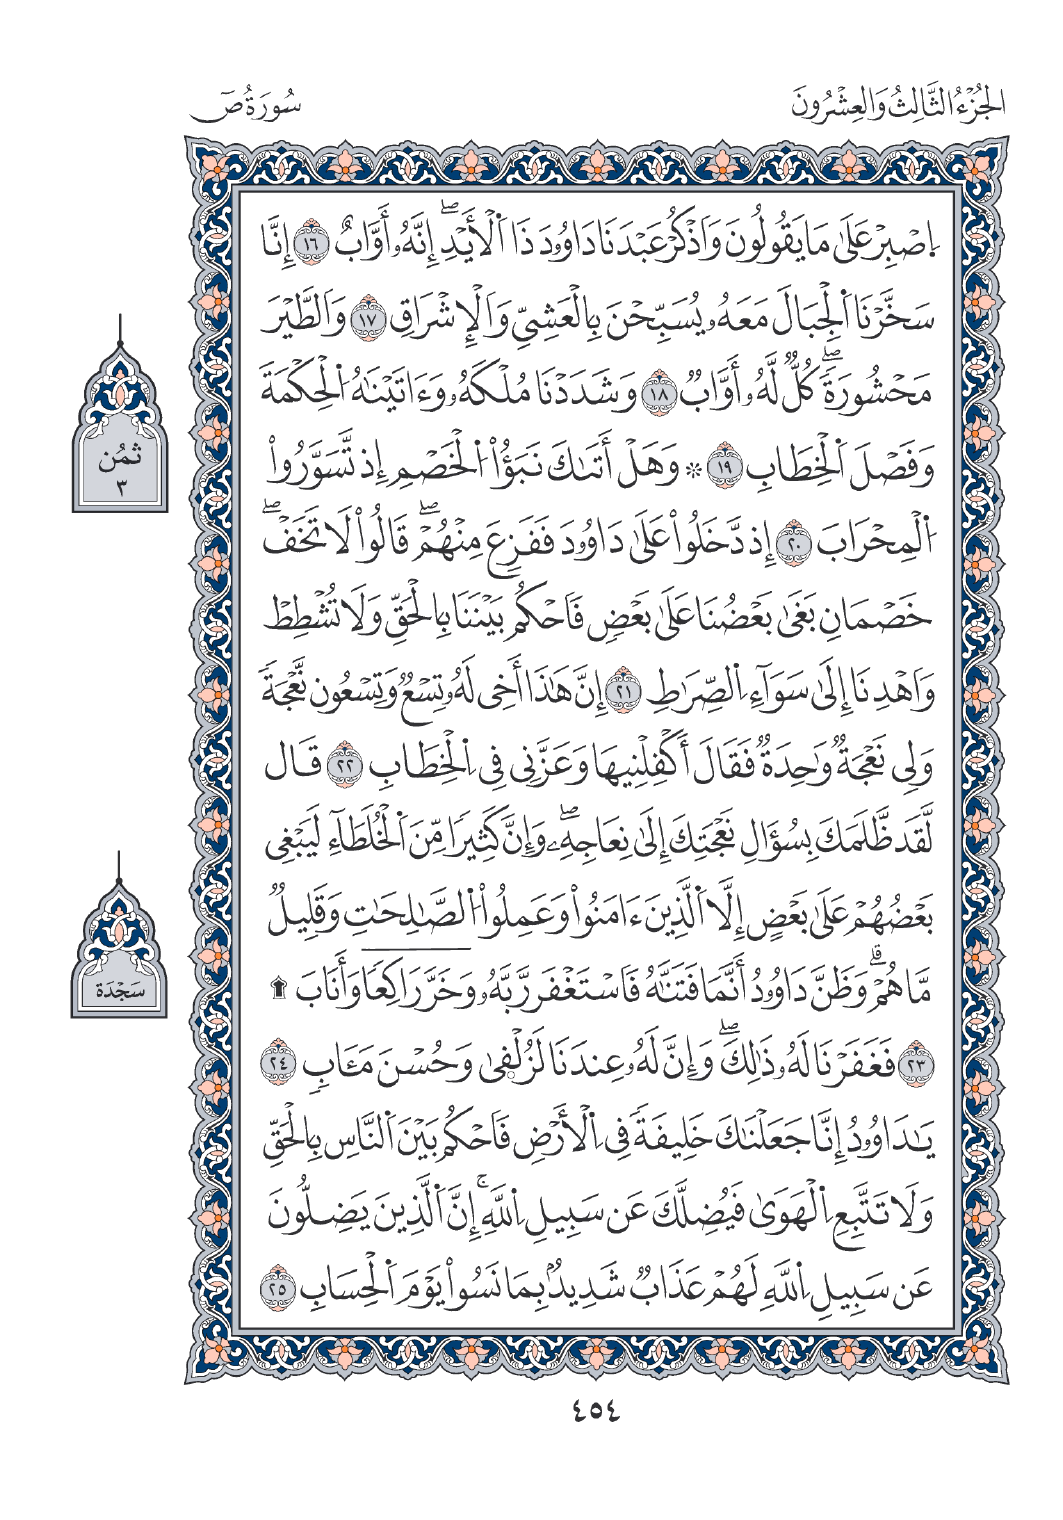 الجُزْءُ الثَّالِثُ وَالعِشْرُونَ
سُورَةُ صٓ
اِ۪صْبِرْ عَلَىٰ مَا يَقُولُونَ وَاَذْكُرْ عَبْدَنَا دَاوُۥدَ ذَا اَ۬لْأَيْدِۖ إِنَّهُۥ أَوَّابٌ ١٦ إِنَّا
سَخَّرْنَا اَ۬لْجِبَالَ مَعَهُۥ يُسَبِّحْنَ بِالْعَشِيِّ وَالْإِشْرَاقِ ١٧ وَالطَّيْرَ
مَحْشُورَةٗۖ كُلّٞ لَّهُۥ أَوَّابٞ ١٨ وَشَدَدْنَا مُلْكَهُۥ وَءَاتَيْنَٰهُ اُ۬لْحِكْمَةَ
وَفَصْلَ اَ۬لْخِطَابِ ١٩ ۞ وَهَلْ أَتَىٰكَ نَبَؤُاْ اُ۬لْخَصْمِ إِذ تَّسَوَّرُواْ
اُ۬لْمِحْرَابَ ٢٠ إِذ دَّخَلُواْ عَلَىٰ دَاوُۥدَ فَفَزِعَ مِنْهُمْۖ قَالُواْ لَا تَخَفْۖ
خَصْمَانِ بَغَىٰ بَعْضُنَا عَلَىٰ بَعْضٖ فَاحْكُم بَيْنَنَا بِالْحَقِّ وَلَا تُشْطِطْ
وَاهْدِنَا إِلَىٰ سَوَآءِ اِ۬لصِّرَٰطِ ٢١ إِنَّ هَٰذَا أَخِي لَهُۥ تِسْعٞ وَتِسْعُون نَّعْجَةٗ
وَلِي نَعْجَةٞ وَٰحِدَةٞ فَقَالَ أَكْفِلْنِيهَا وَعَزَّنِي فِي اِ۬لْخِطَابِ ٢٢ قَال
لَّقَد ظَّلَمَكَ بِسُؤَالِ نَعْجَتِكَ إِلَىٰ نِعَاجِهِۦۖ وَإِنَّ كَثِيرٗا مِّنَ اَ۬لْخُلَطَآءِ لَيَبْغِي
بَعْضُهُمْ عَلَىٰ بَعْضٍ إِلَّا اَ۬لَّذِينَ ءَامَنُواْ وَعَمِلُواْ اُ۬لصَّٰلِحَٰتِ وَقَلِيلٞ
مَّا هُمْۗ وَظَنَّ دَاوُۥدُ أَنَّمَا فَتَنَّٰهُ فَاسْتَغْفَر رَّبَّهُۥ وَخَرَّ رَاكِعٗا وَأَنَابَ ۩
٢٣ فَغَفَرْنَا لَهُۥ ذَٰلِكَۖ وَإِنَّ لَهُۥ عِندَنَا لَزُلْفَىٰ وَحُسْنَ مَـَٔابٖ ٢٤
يَٰدَاوُۥدُ إِنَّا جَعَلْنَٰكَ خَلِيفَةٗ فِي اِ۬لْأَرْضِ فَاحْكُم بَيْنَ اَ۬لنَّاسِ بِالْحَقِّ
وَلَا تَتَّبِعِ اِ۬لْهَوَىٰ فَيُضِلَّكَ عَن سَبِيلِ اِ۬للَّهِۚ إِنَّ اَ۬لَّذِينَ يَضِلُّونَ
عَن سَبِيلِ اِ۬للَّهِ لَهُمْ عَذَابٞ شَدِيدُۢ بِمَا نَسُواْ يَوْمَ اَ۬لْحِسَابِ ٢٥
ثُمُن
٣
سَجْدَة
٤٥٤